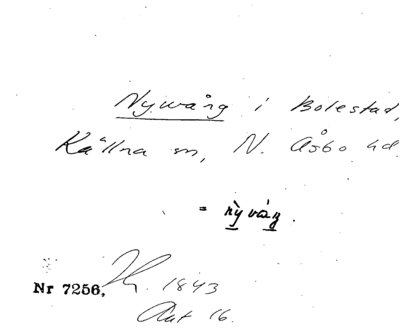 Nywång i Bolestad,
Källna sn, N. Åsbo hd.
= nỳváŋ.
Nr 7256, 1843
Akt 16.